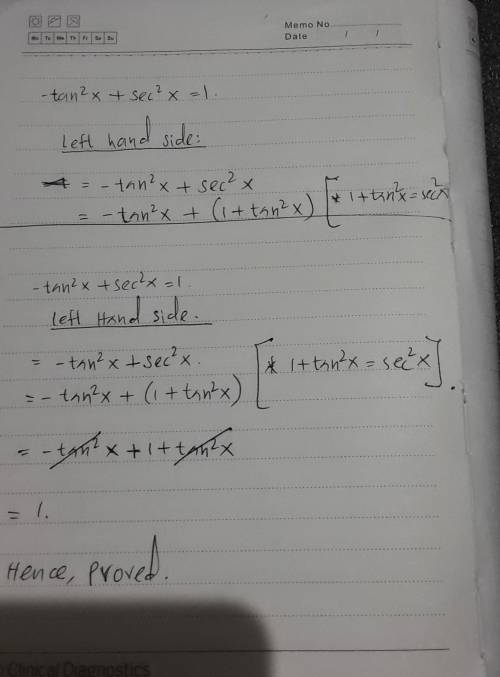 Memo No.
Mo Tu We Th Fr Sa Su
Date / /
-tan²x + sec²x = 1.
Left hand side:
= -tan²x + sec²x
= -tan²x + (1 + tan²x) [* 1 + tan²x = sec²x
-tan²x + sec²x = 1.
Left Hand side.
= -tan²x + sec²x.
= - tan²x + (1 + tan²x) [* 1 + tan²x = sec²x].
= -tan²x + 1 + tan²x
= 1.
Hence, Proved.
Clinical Diagnostics